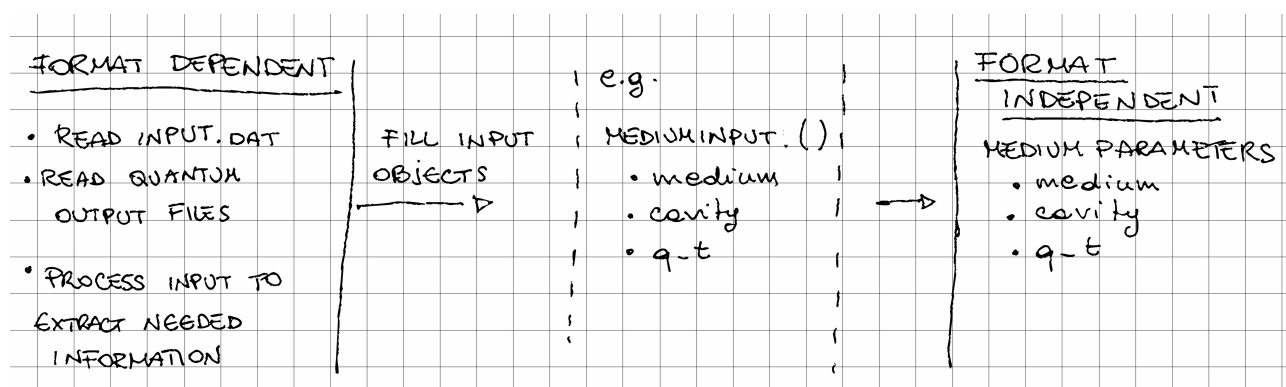 FORMAT DEPENDENT
• READ INPUT.DAT
• READ QUANTUM
OUTPUT FILES
• PROCESS INPUT TO
EXTRACT NEEDED
INFORMATION
FILL INPUT
OBJECTS
e.g.
MEDIUMINPUT.()
• medium
• cavity
• q_t
FORMAT
INDEPENDENT
MEDIUM PARAMETERS
• medium
• cavity
• q_t